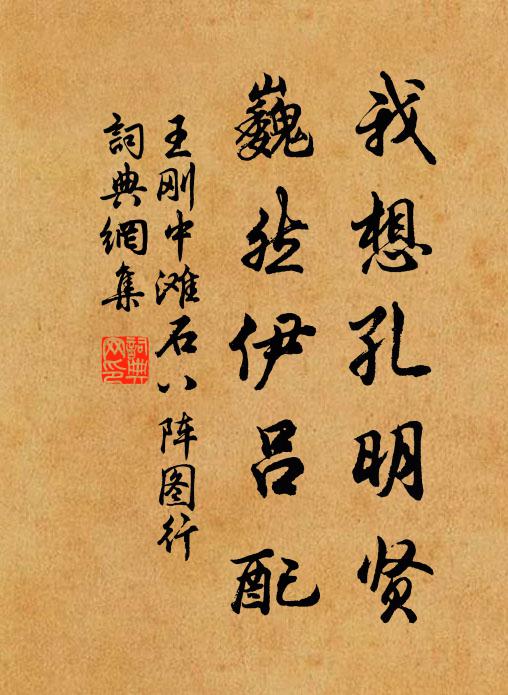 我想孔明贤
巍然伊吕配
王刚中滩石八阵图行
詞典網集
詞典
网印